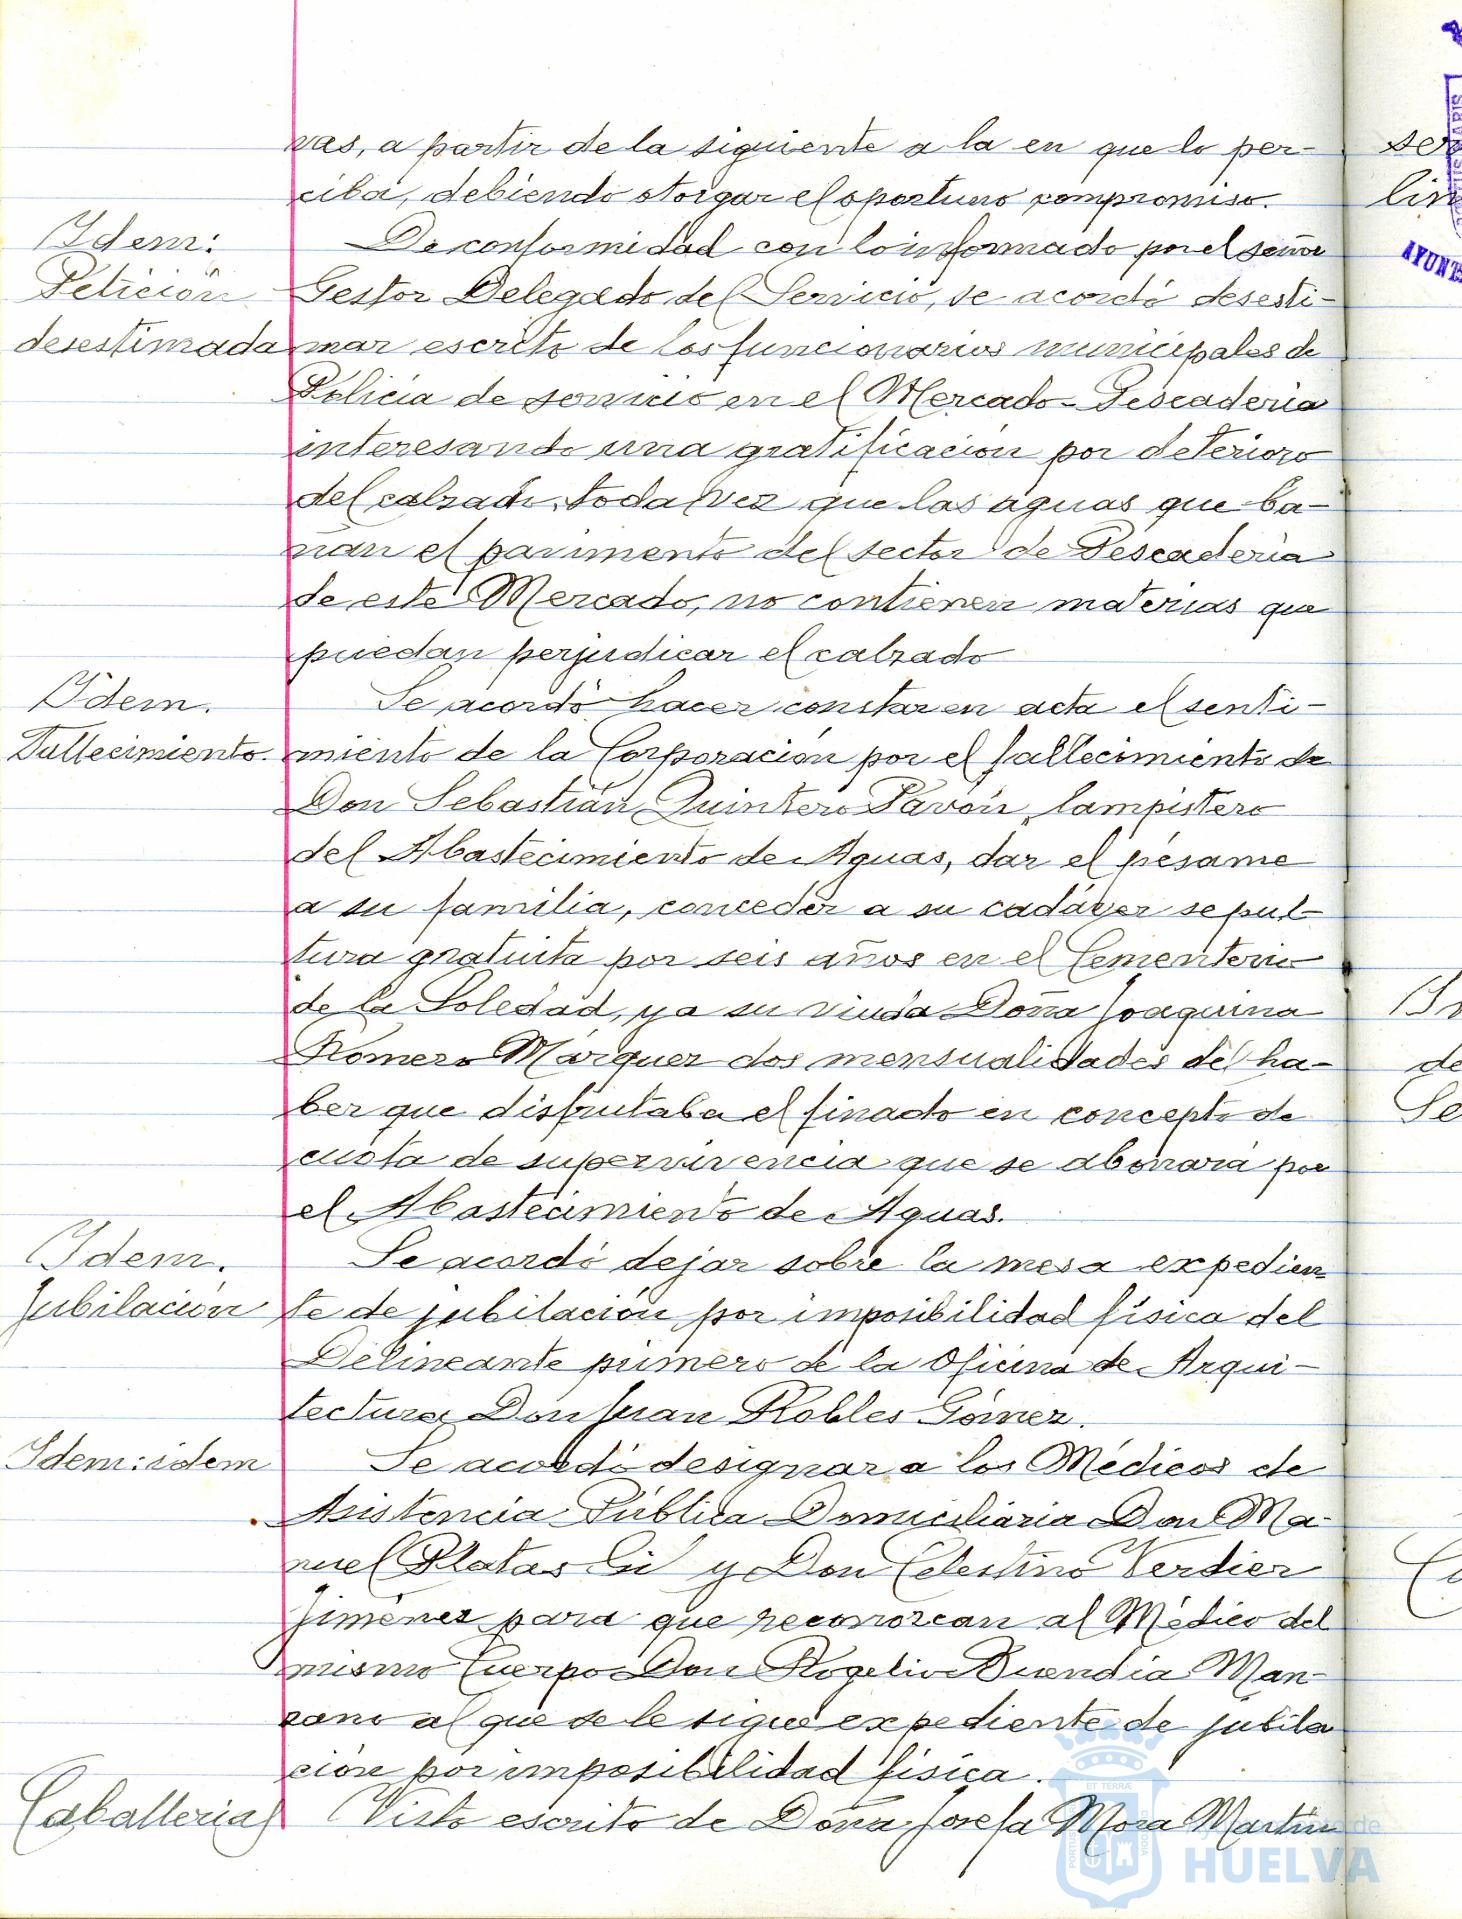 vas, a partir de la siguiente a la en que lo per-
ciba, debiendo otorgar el oportuno compromiso.
Idem:
Petición
desestimada
De conformidad con lo informado por el señor
Gestor Delegado del Servicio, se acordó desesti-
mar escrito de los funcionarios municipales de
Policia de servicio en el Mercado-Pescaderia
interesando una gratificación por deterioro
del calzado, toda vez que las aguas que ba-
ñan el pavimento del sector de Pescaderia
de este Mercado, no contienen materias que
puedan perjudicar el calzado
Idem.
Fallecimiento.
Se acordó hacer constar en acta el senti-
miento de la Corporación por el fallecimiento de
Don Sebastián Quintero Pavón, lampistero
del Abastecimiento de Aguas, dar el pésame
a su familia, conceder a su cadáver sepul-
tura gratuita por seis años en el Cementerio
de la Soledad, y a su viuda Doña Joaquina
Romero Márquez dos mensualidades del ha-
ber que disfrutaba el finado en concepto de
cuota de supervivencia que se abonará por
el Abastecimiento de Aguas.
Idem.
Jubilación
Se acordó dejar sobre la mesa expedien
te de jubilación por imposibilidad física del
Delineante primero de la Oficina de Arqui-
tectura Don Juan Robles Gómez.
Idem: idem
Se acordó designar a los Médicos de
Asistencia Pública Domiciliaria Don Ma-
nuel Platas Gil y Don Celestino Verdier
Jiménez para que reconozcan al Médico del
mismo Cuerpo Don Rogelio Buendia Man-
zano al que se le sigue expediente de jubila
ción por imposibilidad física.
Caballerias
Visto escrito de Doña Josefa Mora Martín
HUELVA